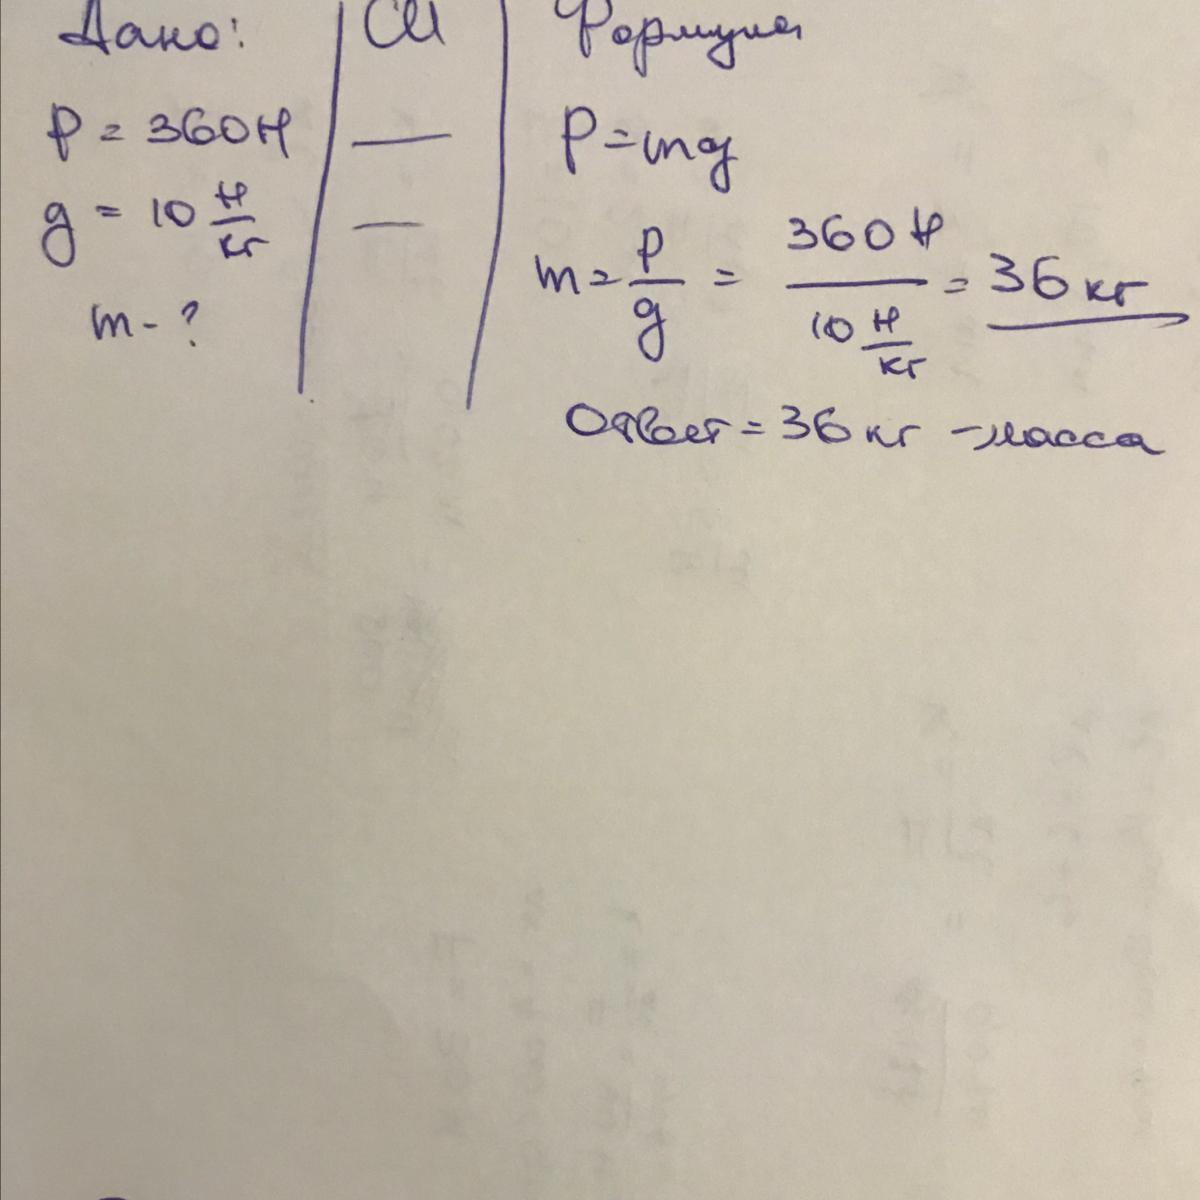 Дано:
P = 360 Н
g = 10 Н/кг
m - ?
СИ
—
—
Формулы
P = mg
m = P/g = 360 Н / 10 Н/кг = 36 кг
Ответ = 36 кг - масса